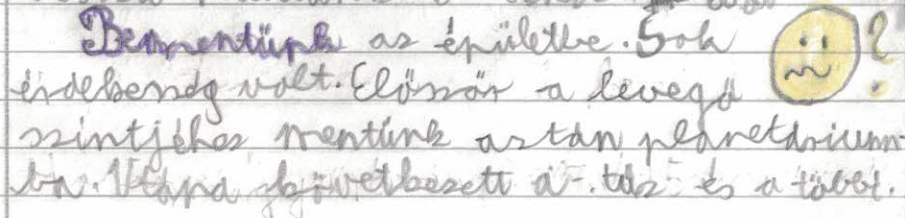 Bementünk az épületbe. Sok ?
érdekesség volt. Először a levegő
szintjéhez mentünk aztán planetárium-
ba. Utána következett a tűz és a többi.